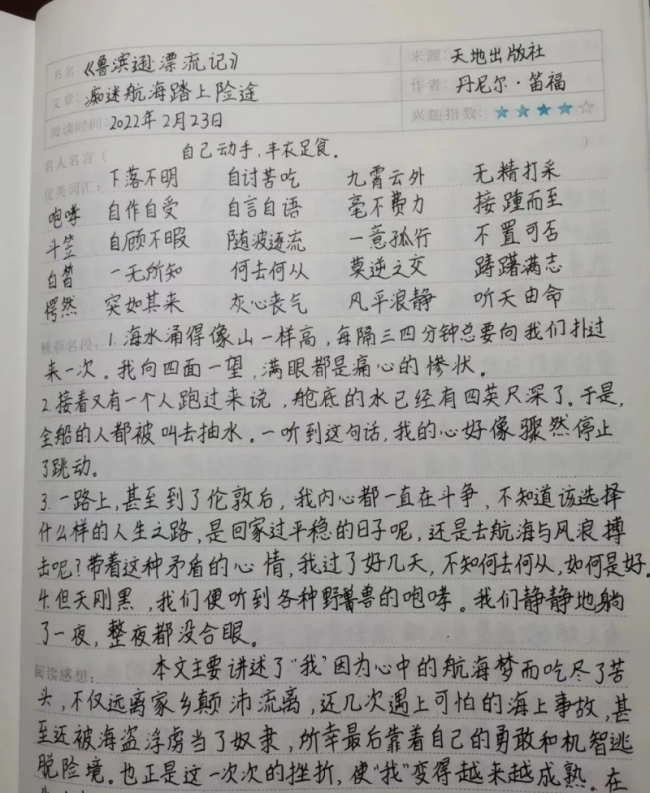 书名:《鲁滨逊漂流记》 来源:天地出版社
文章:痴迷航海踏上险途 作者:丹尼尔·笛福
阅读时间:2022年2月23日 兴趣指数:★★★★☆
名人名言( 自己动手,丰衣足食。 )
优美词汇: 下落不明 自讨苦吃 九霄云外 无精打采
咆哮 自作自受 自言自语 毫不费力 接踵而至
斗笠 自顾不暇 随波逐流 一意孤行 不置可否
白皙 一无所知 何去何从 莫逆之交 踌躇满志
愕然 突如其来 灰心丧气 风平浪静 听天由命
精彩名段: 1.海水涌得像山一样高,每隔三四分钟总要向我们扑过
来一次。我向四面一望,满眼都是痛心的惨状。
2.接着又有一个人跑过来说,舱底的水已经有四英尺深了。于是,
全船的人都被叫去抽水。一听到这句话,我的心好像骤然停止
了跳动。
3.一路上,甚至到了伦敦后,我内心都一直在斗争,不知道该选择
什么样的人生之路,是回家过平稳的日子呢,还是去航海与风浪搏
击呢?带着这种矛盾的心情,我过了好几天,不知何去何从,如何是好。
4.但天刚黑,我们便听到各种野兽的咆哮。我们静静地躺
了一夜,整夜都没合眼。
阅读感想: 本文主要讲述了“我”因为心中的航海梦而吃尽了苦
头,不仅远离家乡颠沛流离,还几次遇上可怕的海上事故,甚
至还被海盗浮虏当了奴隶,所幸最后靠着自己的勇敢和机智逃
脱险境。也正是这一次次的挫折,使“我”变得越来越成熟。在